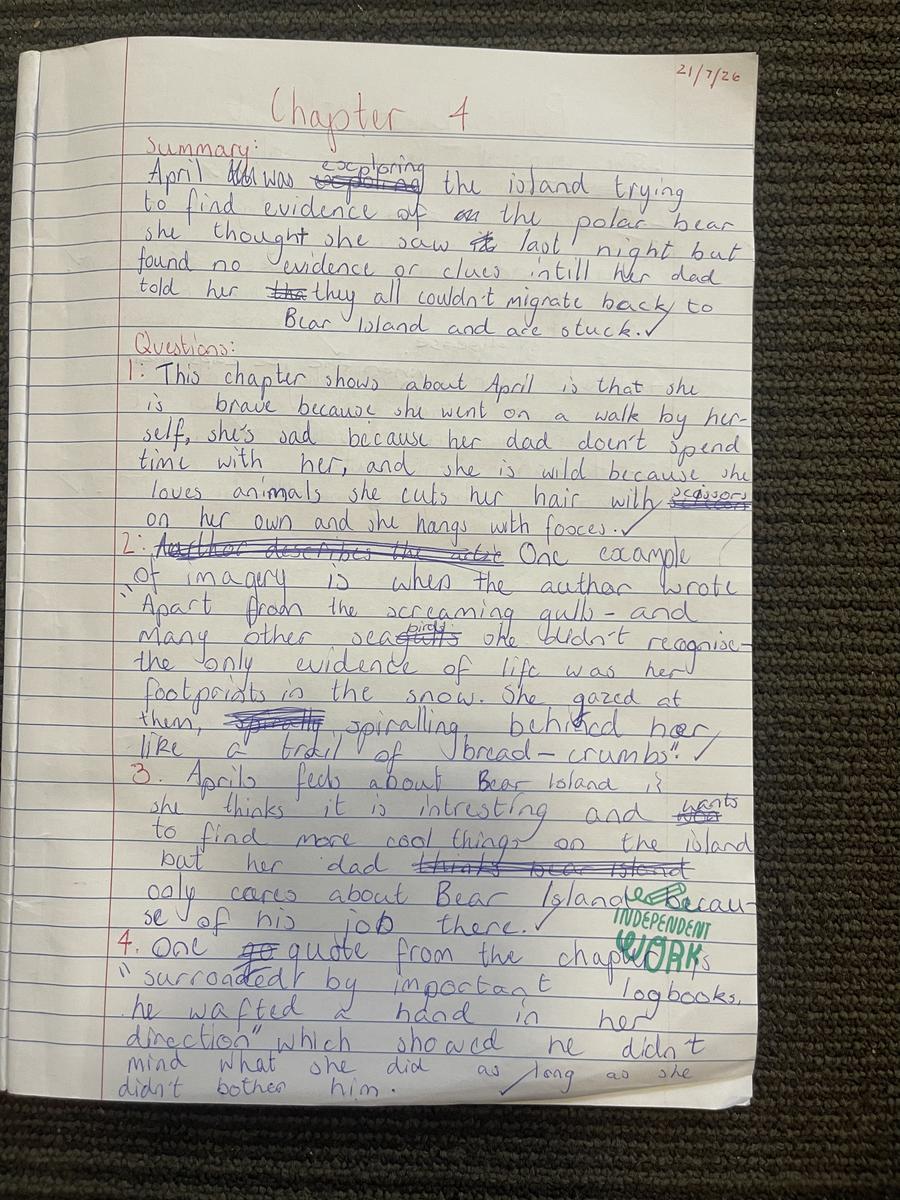 21/7/26
Chapter 4
Summary:
April was exploring the island trying
to find evidence of the polar bear
she thought she saw last night but
found no evidence or clues intill her dad
told her they all couldn't migrate back to
Bear Island and are stuck.
Questions:
1: This chapter shows about April is that she
is brave because she went on a walk by her-
self, she's sad because her dad doen't spend
time with her, and she is wild because she
loves animals she cuts her hair with scissors
on her own and she hangs with fooces.
2: One example
of imagery is when the author wrote
"Apart from the screaming gulls - and
many other seabirds she didn't recognise-
the only evidence of life was her
footprints in the snow. She gazed at
them, spiralling behind her
like a trail of bread-crumbs".
3. Aprils feels about Bear Island is
she thinks it is intresting and wants
to find more cool things on the island
but her dad
only cares about Bear Island Becau-
se of his job there.
INDEPENDENT
WORK
4. One quote from the chapter is
"surrounded by important logbooks,
he wafted a hand in her
direction" which showed he didn't
mind what she did as long as she
didn't bother him.